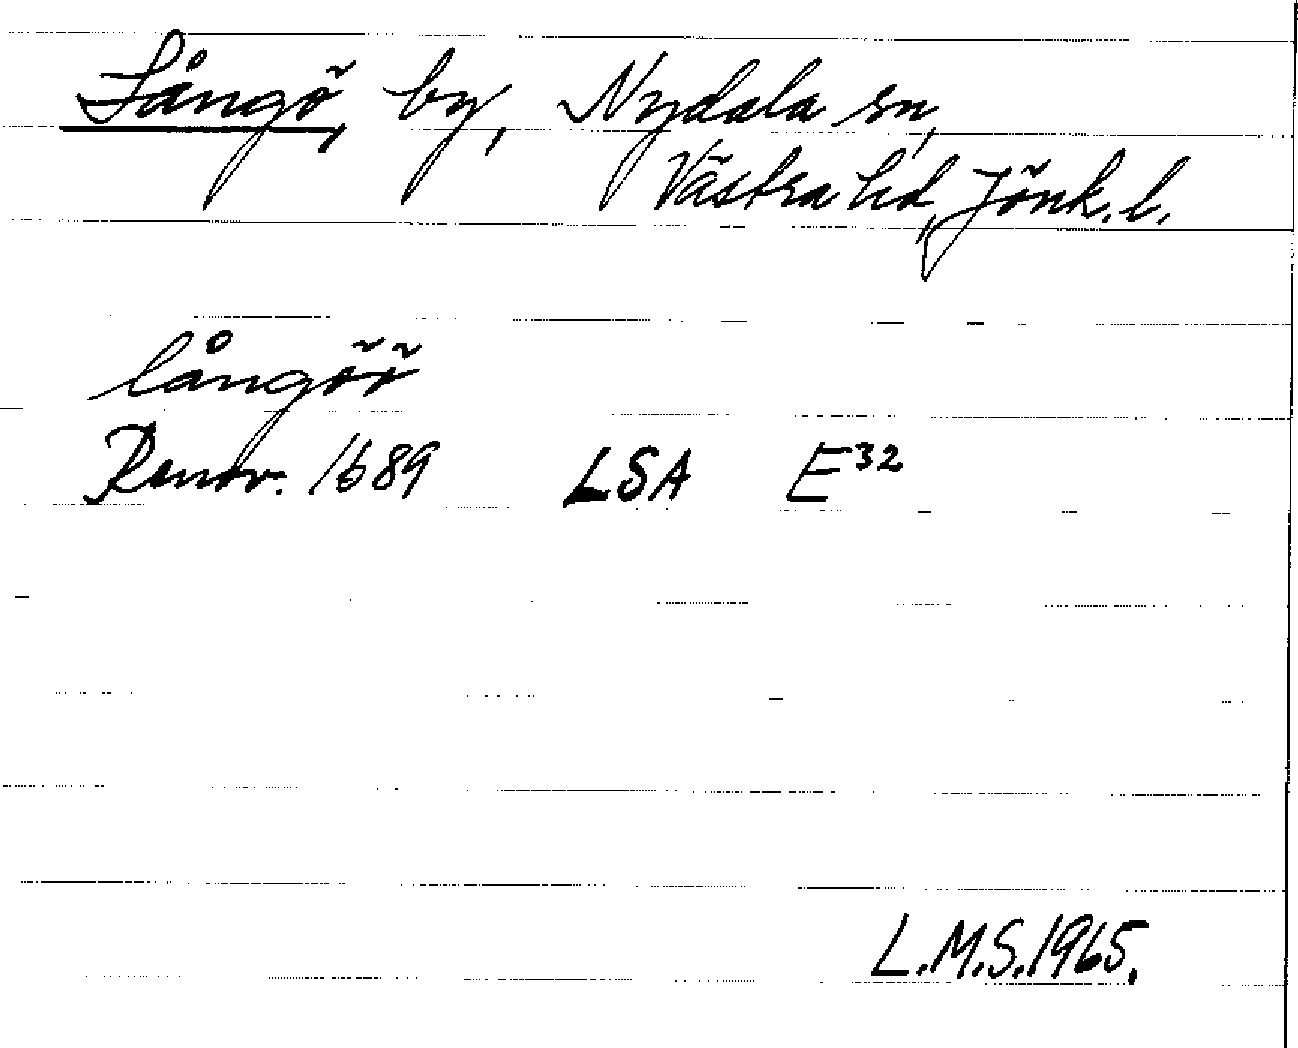 Långö, by, Nydala sn,
Västra hd, Jönk. l.
långöö
Renov. 1689 LSA E³²
L.M.S. 1965.